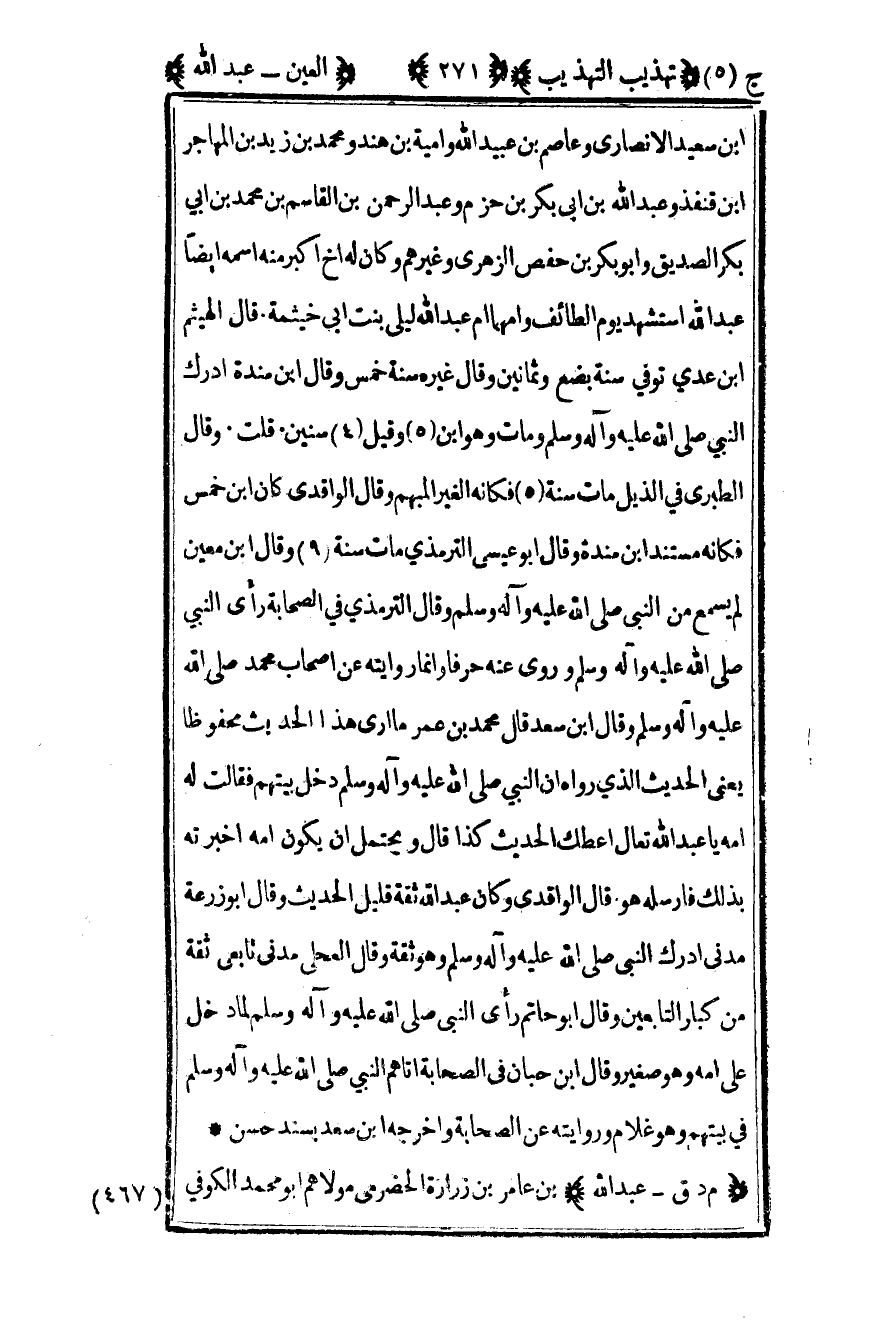 ج (٥) تهذيب التهذيب ٢٧١ العين ــ عبد الله
ابن سعيد الانصارى وعاصم بن عبيد الله وامية بن هند ومحمد بن زيد بن المهاجر
ابن قنفذ وعبد الله بن ابى بكر بن حزم وعبد الرحمن بن القاسم بن محمد بن ابي
بكر الصديق وابو بكر بن حفص الزهرى وغيرهم وكان له اخ اكبر منه اسمه ايضاً
عبد الله استشهد يوم الطائف وامهما ام عبد الله ليلى بنت ابي خيثمة ٠ قال الهيثم
ابن عدي توفي سنة بضع وثمانين وقال غيره سنة خمس وقال ابن مندة ادرك
النبي صلى الله عليه وآله وسلم ومات وهو ابن (٥) وقيل (٤) سنين ٠ قلت ٠ وقال
الطبرى في الذيل مات سنة (٥) فكانه الغير المبهم وقال الواقدى كان ابن خمس
فكانه مستند ابن مندة وقال ابو عيسى الترمذي مات سنة (٩) وقال ابن معين
لم يسمع من النبى صلى الله عليه وآله وسلم وقال الترمذي في الصحابة رأى النبي
صلى الله عليه وآله وسلم و روى عنه حرفا وانما روايته عن اصحاب محمد صلى الله
عليه وآله وسلم وقال ابن سعد قال محمد بن عمر ما ارى هذا الحديث محفوظا
يعنى الحديث الذي رواه ان النبي صلى الله عليه وآله وسلم دخل بيتهم فقالت له
امه يا عبد الله تعال اعطك الحديث كذا قال و يحتمل ان يكون امه اخبرته
بذلك فارسله هو ٠ قال الواقدى وكان عبد الله ثقة قليل الحديث وقال ابو زرعة
مدنى ادرك النبى صلى الله عليه وآله وسلم وهو ثقة وقال العجلى مدنى تابعى ثقة
من كبار التابعين وقال ابو حاتم رأى النبى صلى الله عليه وآله وسلم لما دخل
على امه وهو صغير وقال ابن حبان فى الصحابة اتاهم النبي صلى الله عليه وآله وسلم
في بيتهم وهو غلام وروايته عن الصحابة واخرجه ابن سعد بسند حسن *
م د ق ــ عبد الله بن عامر بن زرارة الحضرمى مولاهم ابو محمد الكوفي (٤٦٧)